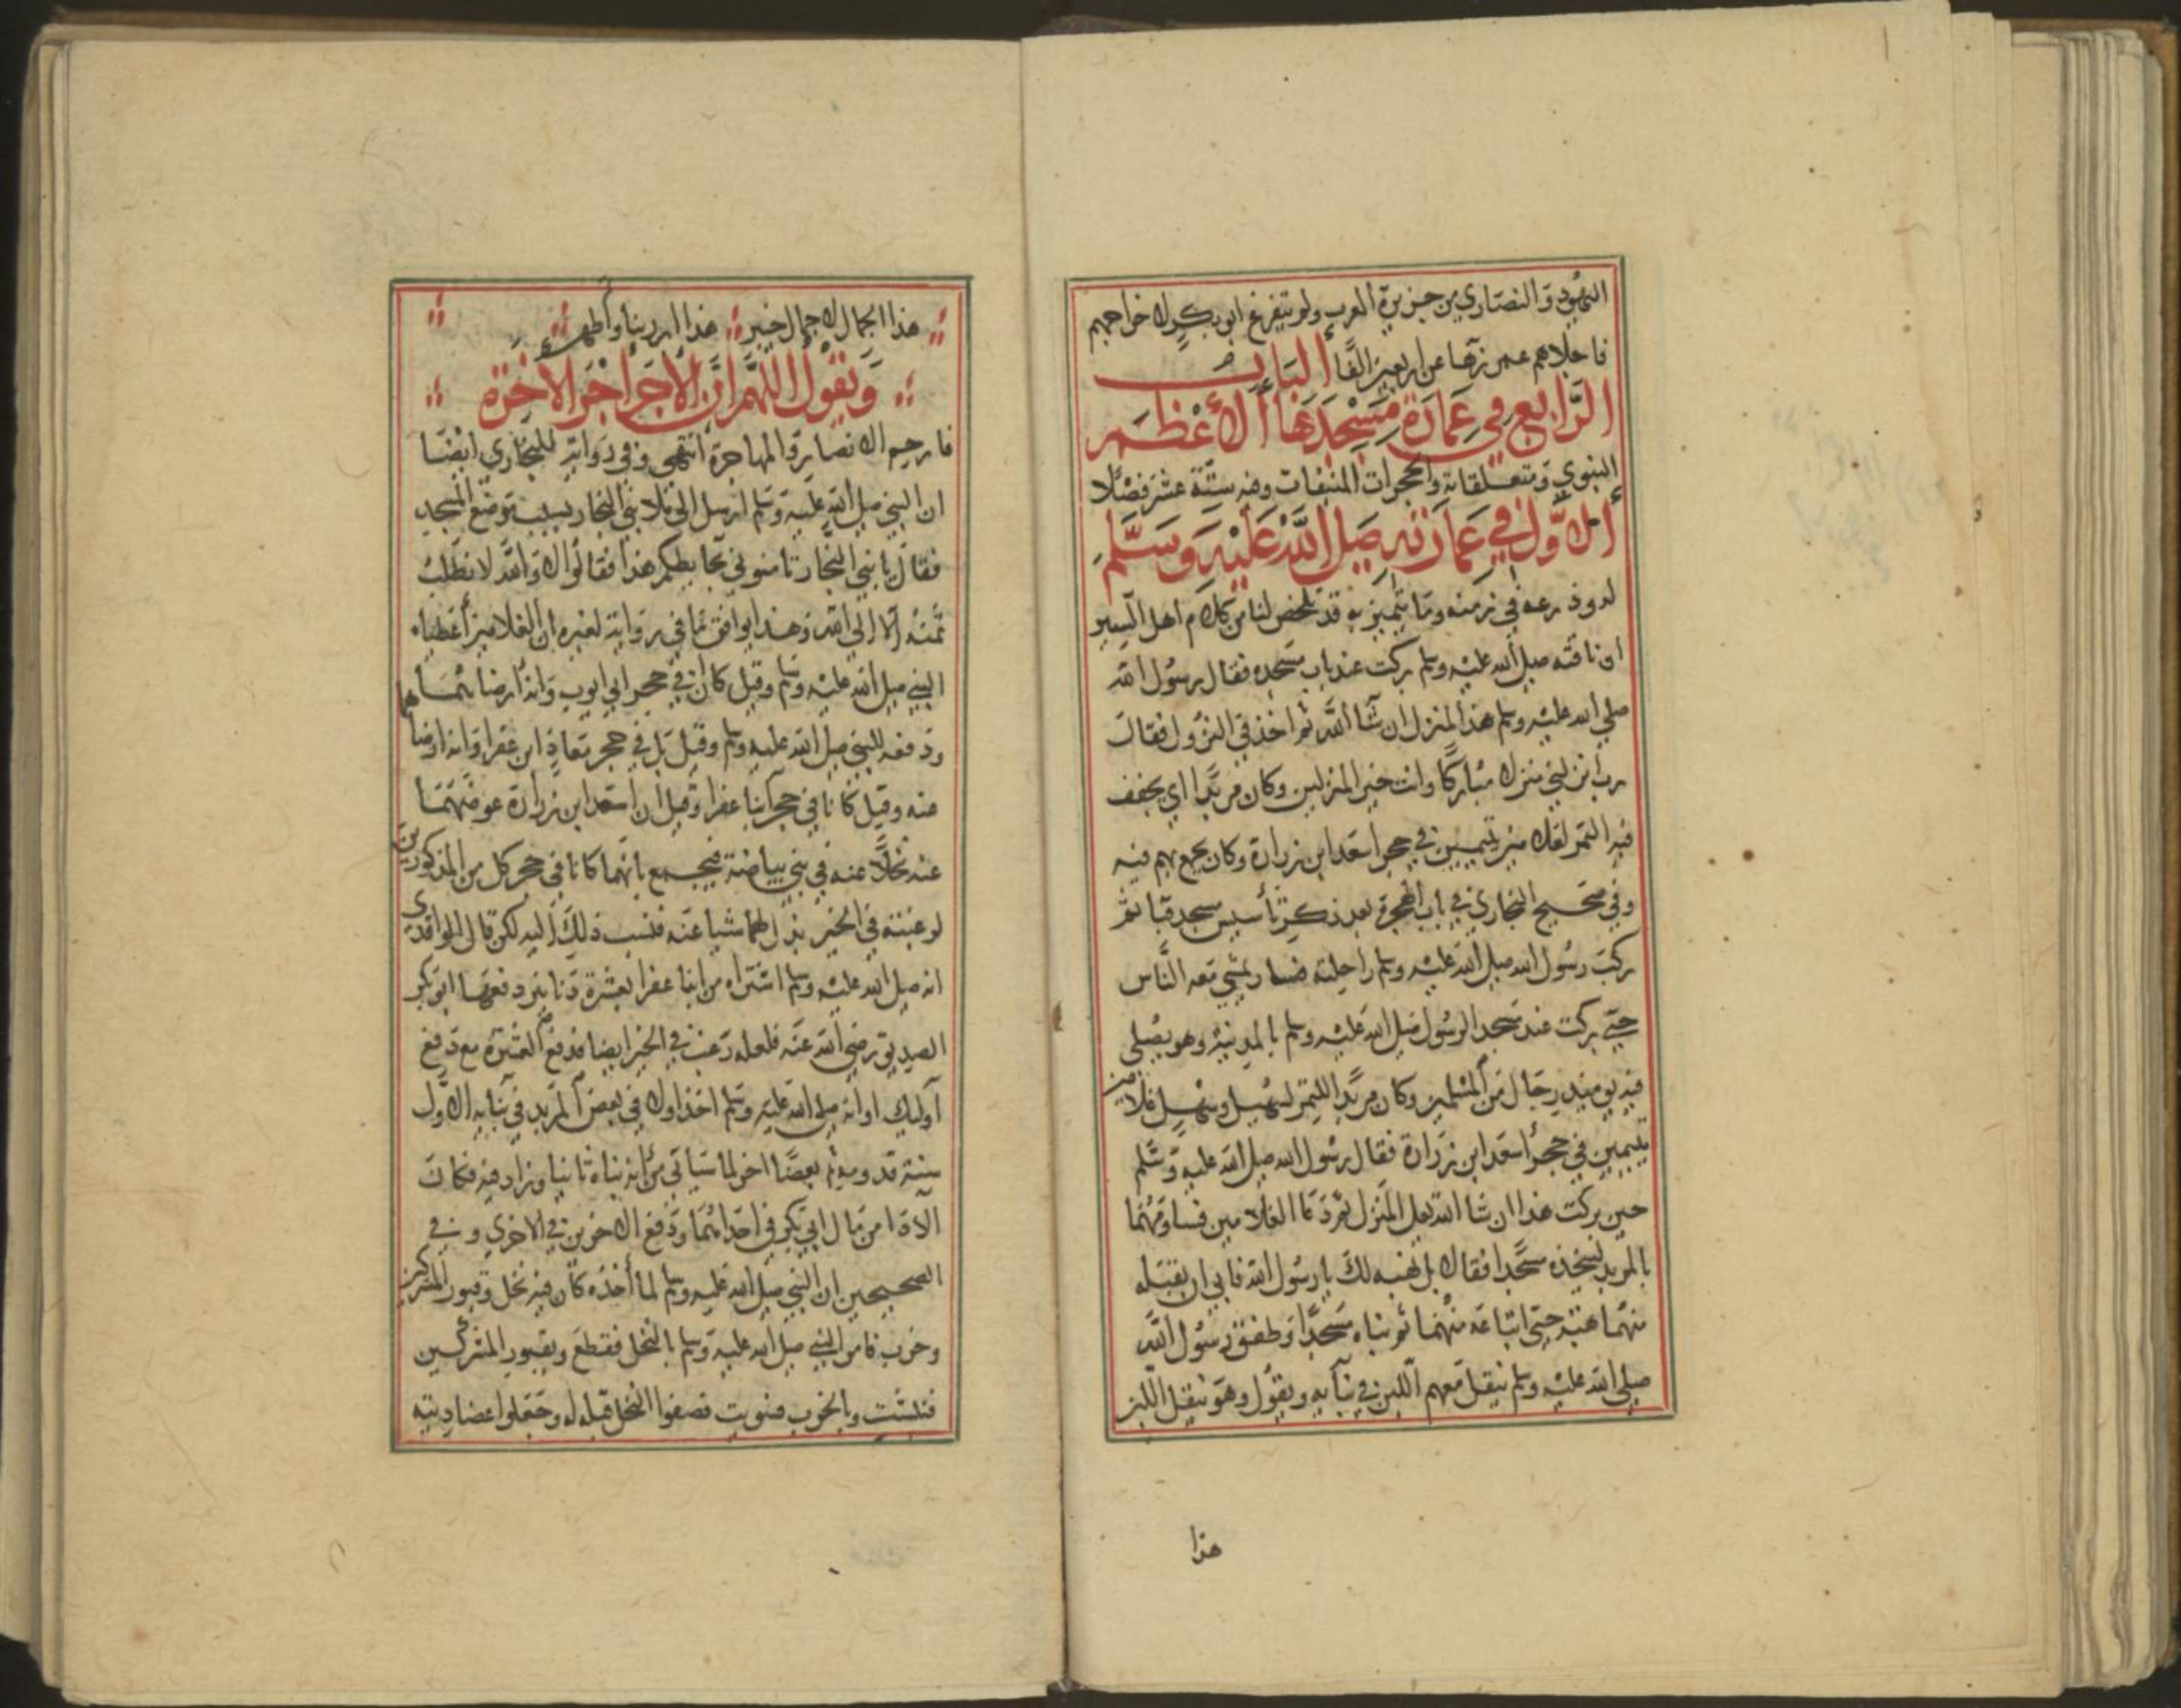 اليهود والنصاري من جزيرة العرب ولم يتفرغ ابو بكر لاخراجهم
فاجلاهم عمر زها عن اربعين الفا الباب
الرابع في عمارة مسجدها الاعظم
النبوي ومتعلقاته والحجرات المنيفات وفيه ستة عشر فصلا
الاول في عمارته صلى الله عليه وسلم
له وذرعه في زمنه وما يتميز به قد تلخص لنا من كلام اهل السير
ان ناقته صلى الله عليه وسلم بركت عند باب مسجده فقال رسول الله
صلى الله عليه وسلم هذا المنزل ان شا الله ثم اخذ في النزول فقال
رب انزلني منزلا مباركا وانت خير المنزلين وكان مربدا اي يجفف
فيه التمر لغلامين يتيمين في حجر اسعد ابن زرارة وكان يجمع بهم فيه
وفي صحيح البخاري في باب الهجرة بعد ذكر تأسيس مسجد قبا ثم
ركب رسول الله صلى الله عليه وسلم راحلته فسار يمشي معه الناس
حتى بركت عند مسجد الرسول صلى الله عليه وسلم بالمدينة وهو يصلي
فيه يوميذ رجال من المسلمين وكان مربدا للتمر لسهيل وسهل غلامين
يتيمين في حجر اسعد ابن زرارة فقال رسول الله صلى الله عليه وسلم
حين بركت هذا ان شا الله تعلى المنزل ثم دعا الغلامين فساومهما
بالمربد ليتخذه مسجدا فقالا بل نهبه لك يا رسول الله فابي ان يقبله
منهما هبة حتى ابتاعه منهما ثم بناه مسجدا وطفق رسول الله
صلى الله عليه وسلم ينقل معهم اللبن في بنآيه ويقول وهو ينقل اللبن
هذا
هذا الجمال لا جمال خيبر هذا ابر ربنا واطهر
ويقول اللهم ان الاجر اجر الاخرة
فارحم الانصار والمهاجرة انتهى وفي رواية للبخاري ايضا
ان النبي صلى الله عليه وسلم ارسل الى ملا بني النجار بسبب موضع المسجد
فقال يا بني النجار ثامنوني بحايطكم هذا فقالوا لا والله لا نطلب
ثمنه الا الي الله وهذا يوافق ما في رواية لغيره ان الغلامين اعطياه
النبي صلى الله عليه وسلم وقيل كان في حجر ابي ايوب وانه ارضاهما
ودفعه للنبي صلى الله عليه وسلم وقيل بل في حجر معاذ ابن عفرا وانه ارضاهما
عنه وقيل كانا في حجر ابنا عفرا وقيل ان اسعد ابن زرارة عوضهما
عنه نخلا عنه في بني بياضة فيجمع بانهما كانا في حجر كل من المذكورين
لرغبته في الخير بذل لهما شيا عنه فنسب ذلك اليه لكن قال الواقدي
انه صلى الله عليه وسلم اشتراه من ابنا عفرا بعشرة دنانير دفعها ابو بكر
الصديق رضي الله عنه فلعله رغب في الخير ايضا فدفع العشرة مع دفع
اوليك او انه صلى الله عليه وسلم اخذ اولا في بعض المربد في بنآيه الاول
سنة قدومه ثم بعضا اخر لما سياتي من انه بناه ثانيا وزاد فيه فكان
الادا من مال ابي بكر في احداهما ودفع الاخرين في الاخري وفي
الصحيحين ان النبي صلى الله عليه وسلم لما أخذه كان فيه نخل وقبور المشركين
وخرب فامر النبي صلى الله عليه وسلم بالنخل فقطع وبقبور المشركين
فنبشت وبالخرب فسويت فصفوا النخل قبله له وجعلوا عضاديته